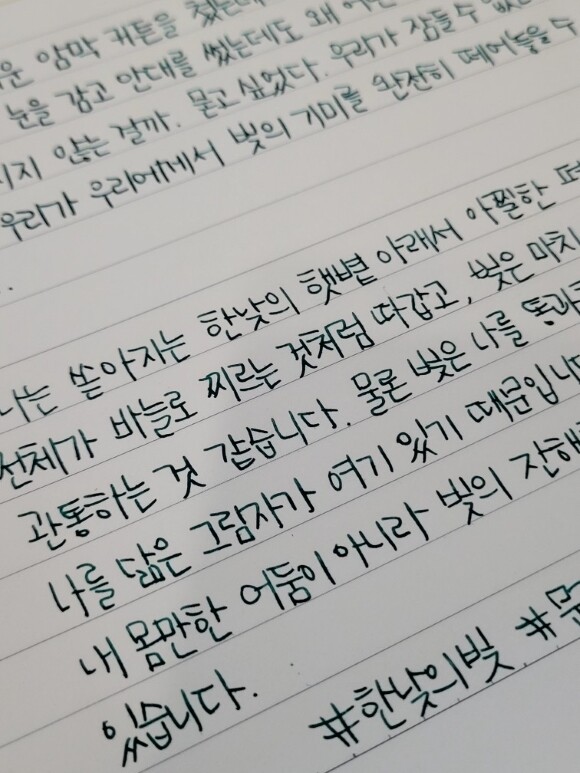 운 암막 커튼을 쳤는데
눈을 감고 안대를 썼는데도 왜 어둠
지지 않는 걸까. 묻고 싶었다. 우리가 잠들 수 없는
우리가 우리에게서 빛의 기미를 완전히 떼어놓을 수
나는 쏟아지는 한낮의 햇볕 아래서 아찔한
전체가 바늘로 찌르는 것처럼 따갑고, 빛은 마치
관통하는 것 같습니다. 물론 빛은 나를 통과
나를 닮은 그림자가 여기 있기 때문입니다
내 몸만한 어둠이 아니라 빛의 잔해
있습니다.
#한낮의빛 #문